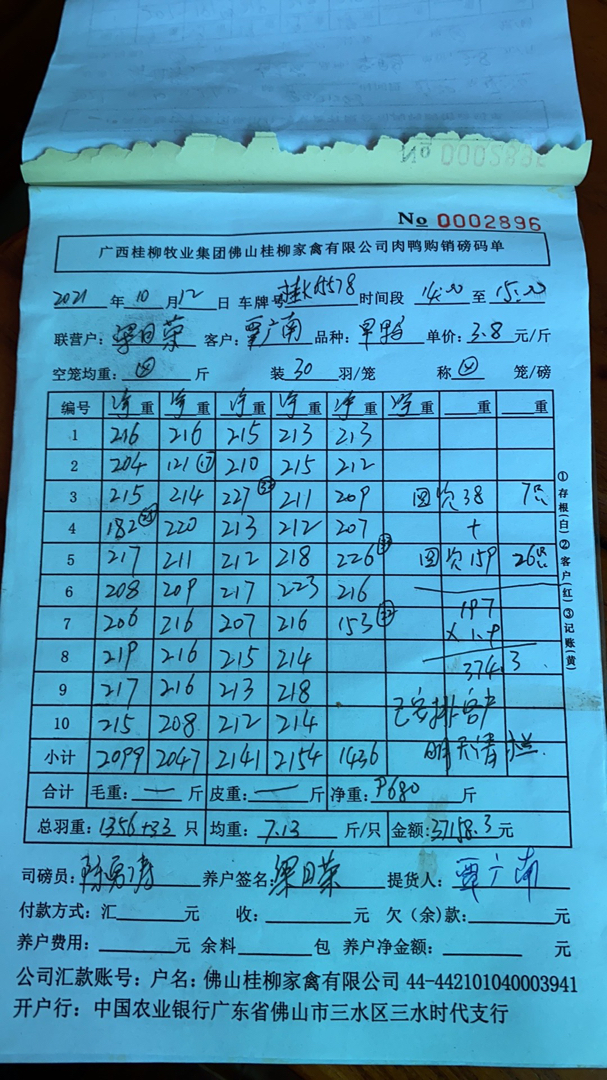 No 0002896
No 0002896
广西桂柳牧业集团佛山桂柳家禽有限公司肉鸭购销磅码单
2021 年 10 月 12 日 车牌号 桂K65578 时间段 14:00 至 15:00
联营户: 梁日荣 客户: 覃广南 品种: 旱鸭 单价: 3.8 元/斤
空笼均重: 斤 装 30 羽/笼 称 笼/磅
编号 净重 净重 净重 净重 净重 净重 重 重
1 216 216 215 213 213
2 204 121 17 210 215 212
3 215 214 227 211 209 图欠38 7只
4 182 220 213 212 207 +
5 217 211 212 218 226 图欠159 26只
6 208 209 217 223 216
7 206 216 207 216 153 197
8 219 216 215 214 374.3
9 217 216 213 218 已安排客户
10 215 208 212 214 明天清栏
小计 2099 2047 2141 2154 1436
合计 毛重: 一 斤 皮重: 一 斤 净重: 9680 斤
总羽重: 1356+33 只 均重: 7.13 斤/只 金额: 37158.3 元
司磅员: 养户签名: 梁日荣 提货人: 覃广南
付款方式: 汇 元 收: 元 欠(余)款: 元
养户费用: 元 余料 包 养户净金额: 元
公司汇款账号: 户名: 佛山桂柳家禽有限公司 44-442101040003941
开户行: 中国农业银行广东省佛山市三水区三水时代支行
①存根(白)②客户(红)③记账(黄)